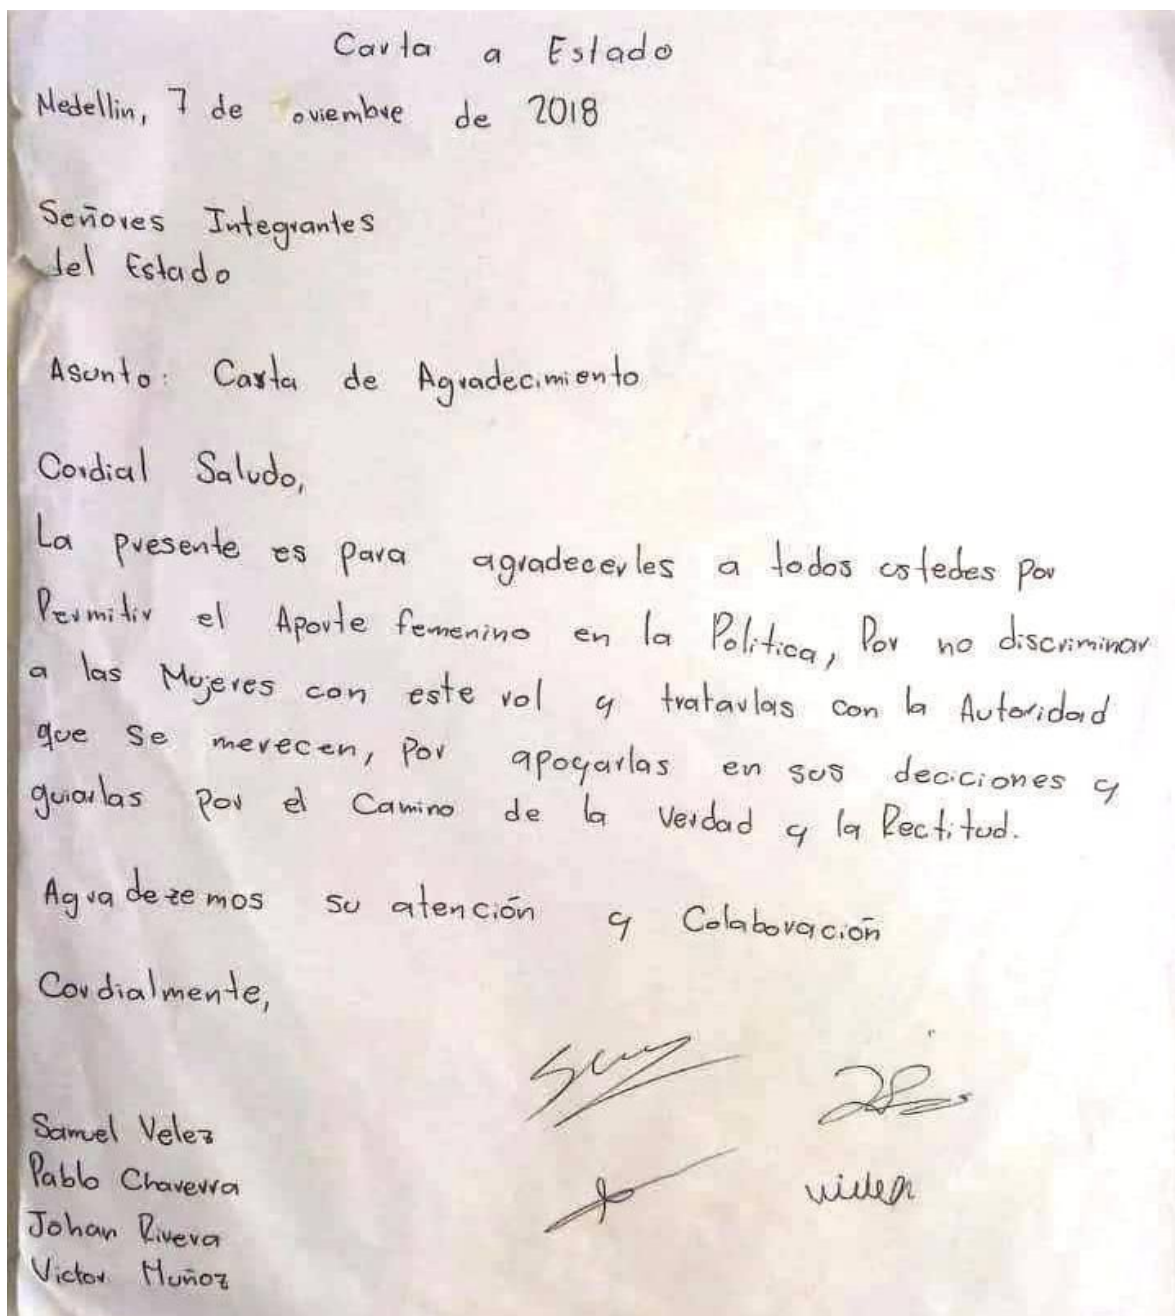 Carta a Estado
Medellin, 7 de oviembre de 2018
Señores Integrantes
del Estado
Asunto: Carta de Agradecimiento
Cordial Saludo,
La presente es para agradecerles a todos ustedes por
Permitir el Aporte femenino en la Politica, Por no discriminar
a las Mujeres con este rol y tratarlas con la Autoridad
que se merecen, por apoyarlas en sus deciciones y
guiarlas por el Camino de la verdad y la Rectitud.
Agradezemos su atención y Colaboración
Cordialmente,
Samuel Velez
Pablo Chaverra
Johan Rivera
Victor Muñoz